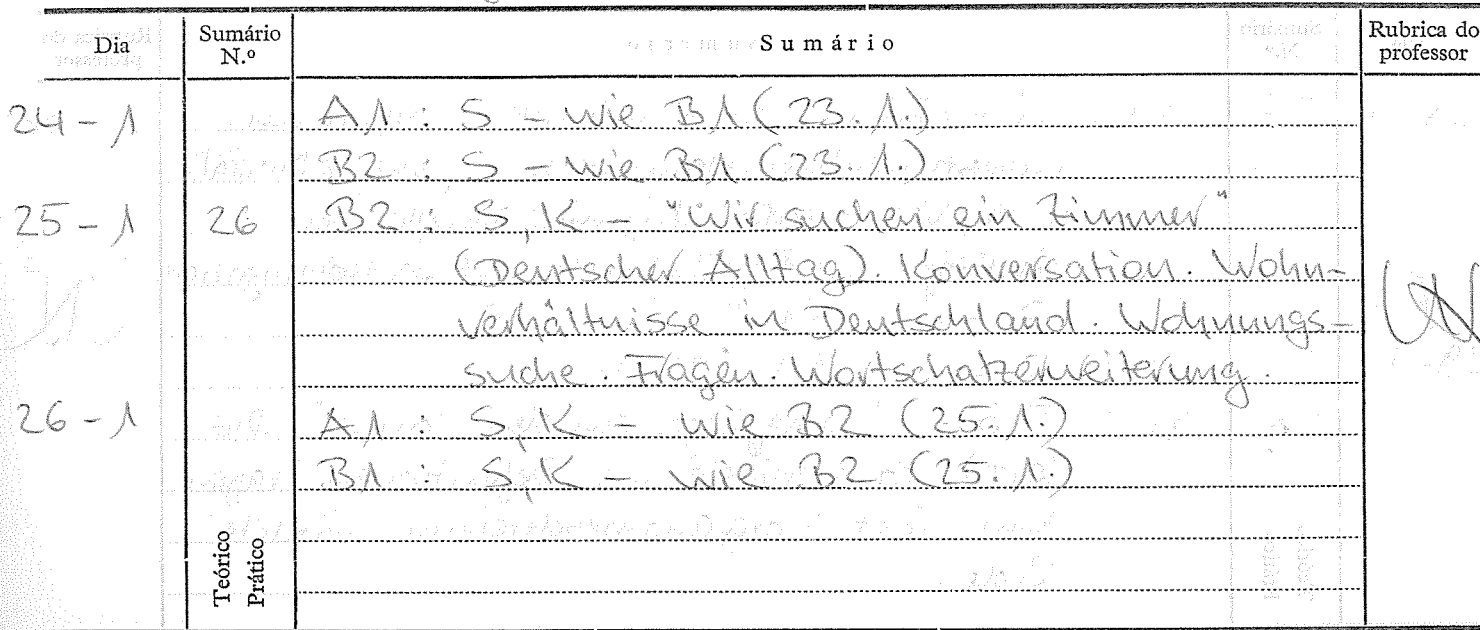 Dia Sumário N.º Sumário Rubrica do professor
24-1 A1: S - wie B1 (23.1.)
B2: S - wie B1 (23.1.)
25-1 26 B2: S, K - "Wir suchen ein Zimmer"
(Deutscher Alltag). Konversation. Wohn-
verhältnisse in Deutschland. Wohnungs-
suche. Fragen. Wortschatzerweiterung.
26-1 A1: S, K - wie B2 (25.1.)
B1: S, K - wie B2 (25.1.)
Teórico
Prático